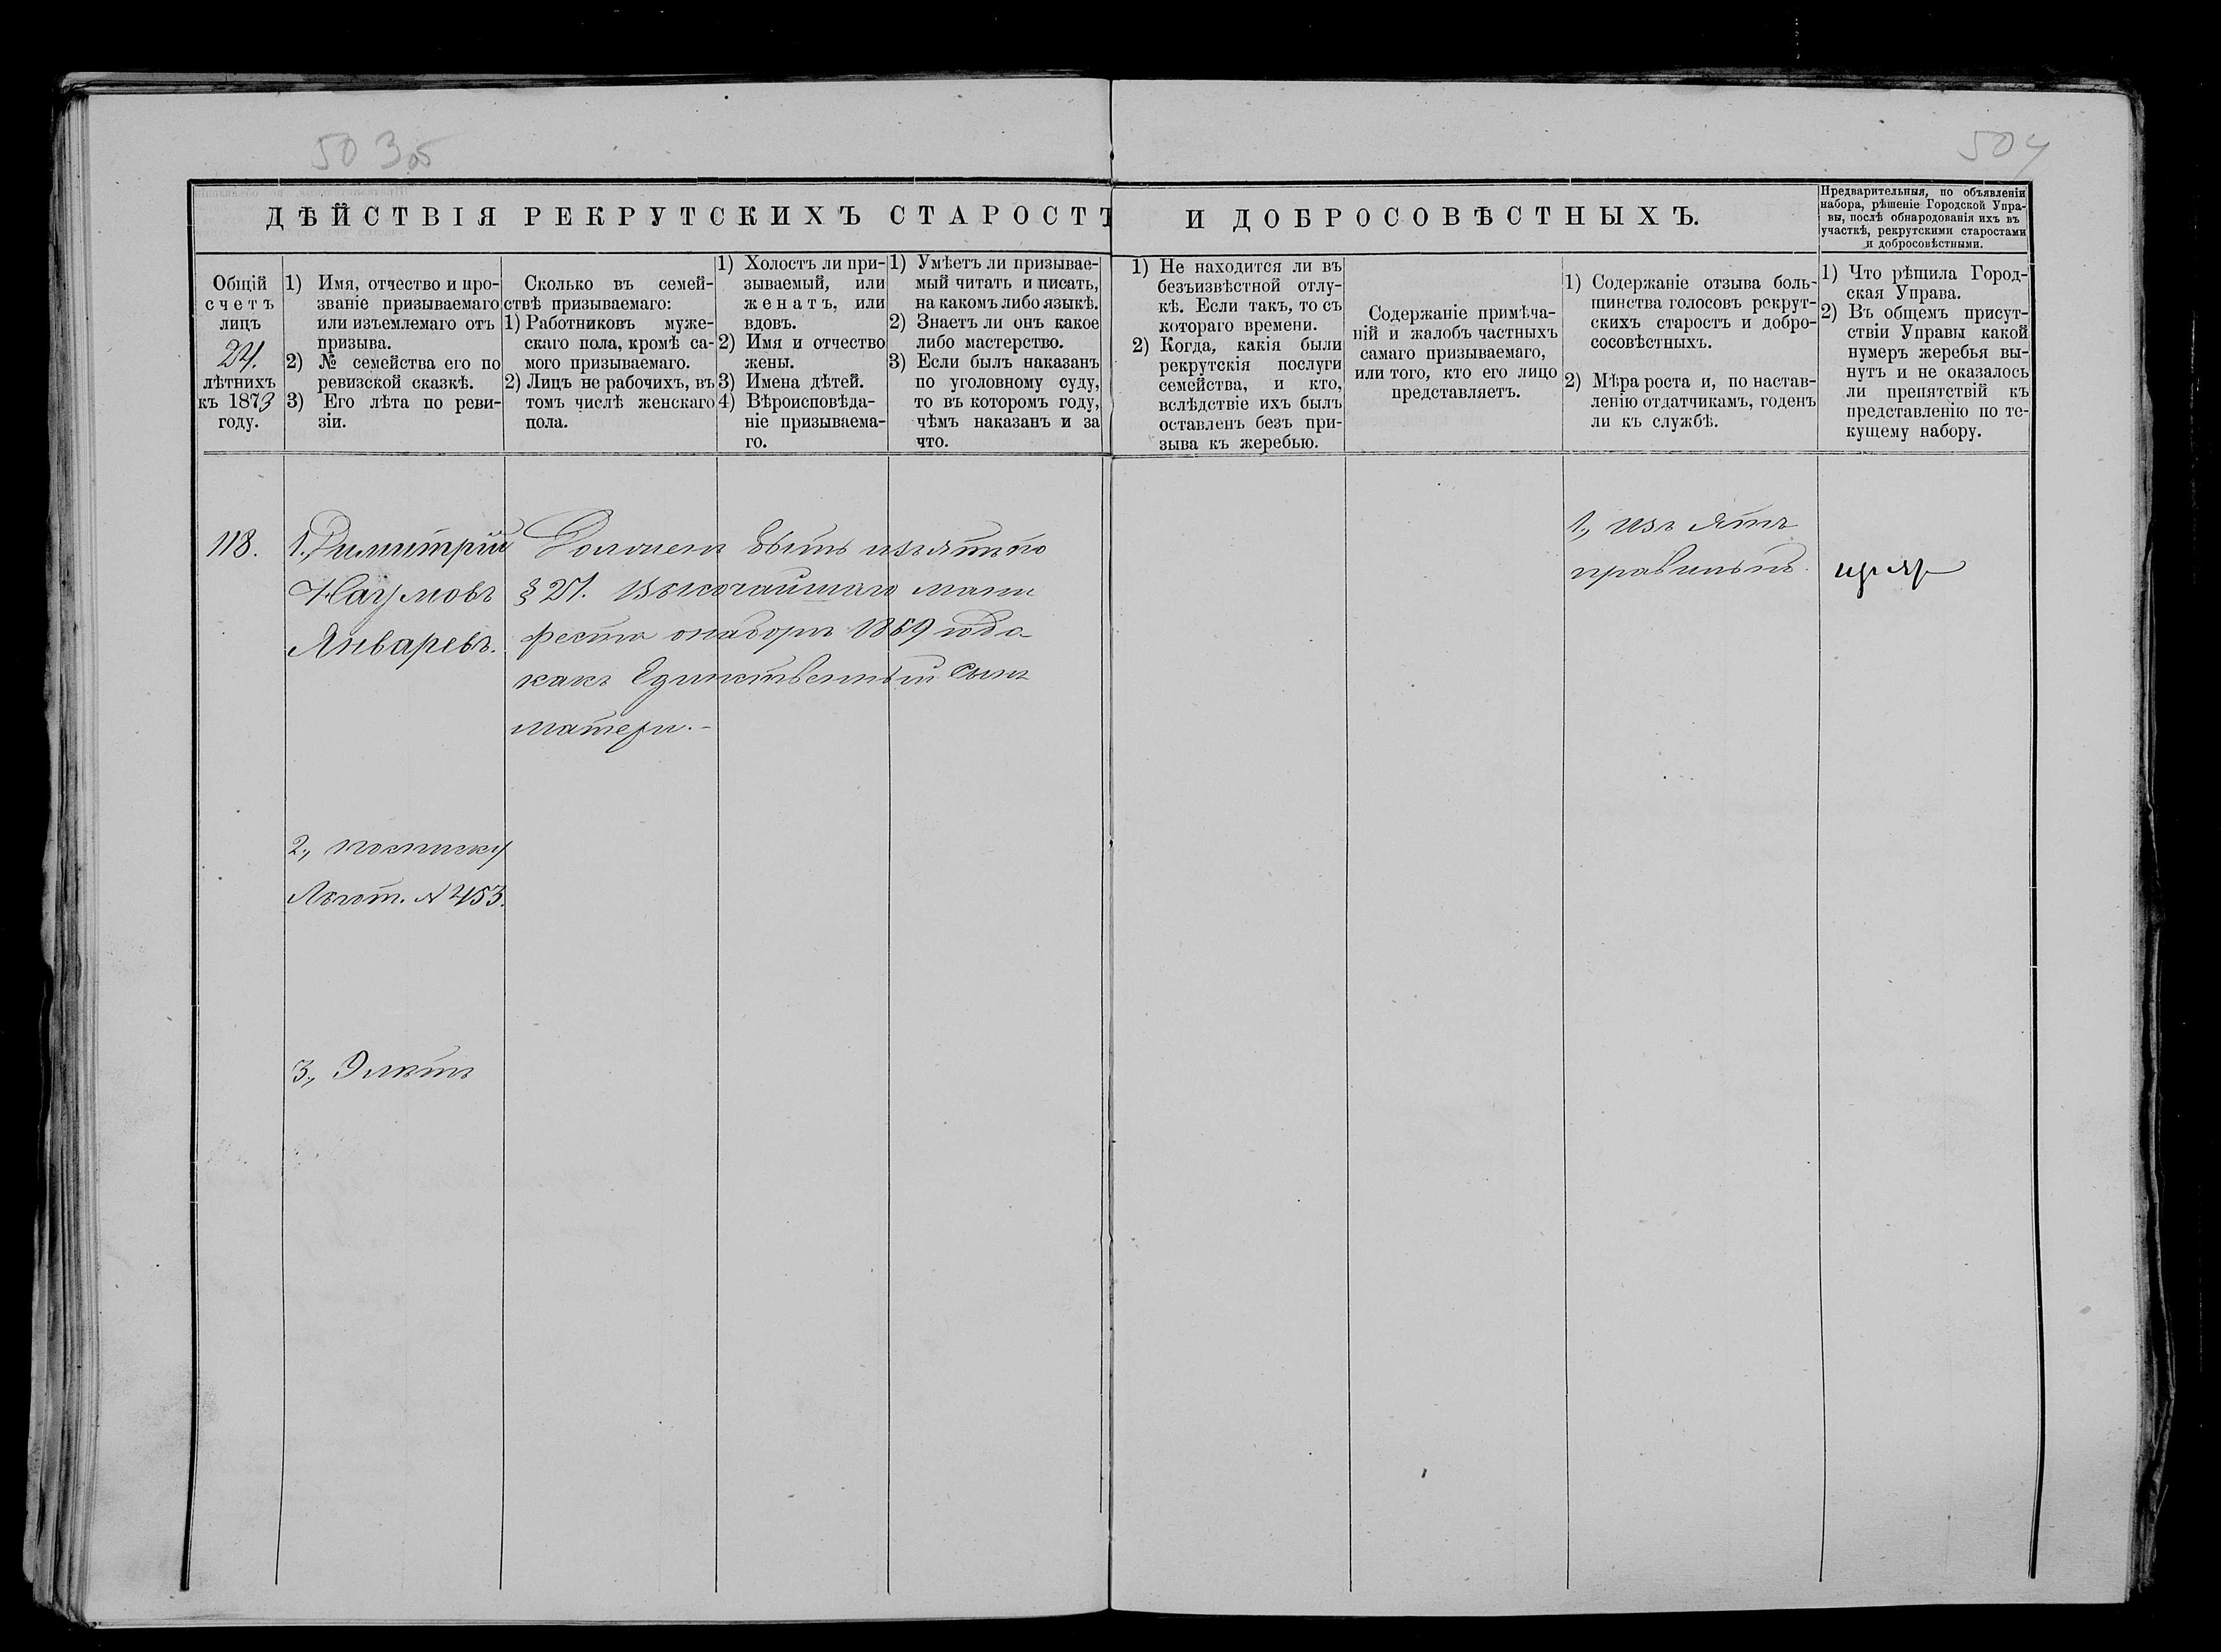 503об
504
ДѢЙСТВІЯ РЕКРУТСКИХЪ СТАРОСТЪ И ДОБРОСОВѢСТНЫХЪ.
Предварительныя, по объявленіи
набора, рѣшеніе Городской Упра-
вы, послѣ обнародованія ихъ въ
участкѣ, рекрутскими старостами
и добросовѣстными.
Общій
счетъ
лицъ
24.
лѣтнихъ
къ 1873
году.
1) Имя, отчество и про-
званіе призываемаго
или изъемлемаго отъ
призыва.
2) № семейства его по
ревизской сказкѣ.
3) Его лѣта по реви-
зіи.
Сколько въ семей-
ствѣ призываемаго:
1) Работниковъ муже-
скаго пола, кромѣ са-
мого призываемаго.
2) Лицъ не рабочихъ, въ
томъ числѣ женскаго
пола.
1) Холостъ ли при-
зываемый, или
женатъ, или
вдовъ.
2) Имя и отчество
жены.
3) Имена дѣтей.
4) Вѣроисповѣда-
ніе призываема-
го.
1) Умѣетъ ли призывае-
мый читать и писать,
на какомъ либо языкѣ.
2) Знаетъ ли онъ какое
либо мастерство.
3) Если былъ наказанъ
по уголовному суду,
то въ которомъ году,
чѣмъ наказанъ и за
что.
1) Не находится ли въ
безъизвѣстной отлу-
кѣ. Если такъ, то съ
котораго времени.
2) Когда, какія были
рекрутскія послуги
семейства, и кто,
вслѣдствіе ихъ былъ
оставленъ безъ при-
зыва къ жеребью.
Содержаніе примѣча-
ній и жалобъ частныхъ
самаго призываемаго,
или того, кто его лицо
представляетъ.
1) Содержаніе отзыва боль-
шинства голосовъ рекрут-
скихъ старостъ и добро-
сосовѣстныхъ.
2) Мѣра роста и, по настав-
ленію отдатчикамъ, годенъ
ли къ службѣ.
1) Что рѣшила Город-
ская Управа.
2) Въ общемъ присут-
ствіи Управы какой
нумеръ жеребья вы-
нутъ и не оказалось
ли препятствій къ
представленію по те-
кущему набору.
118.
1, Димитрій
Наумовъ
Январевъ.
2, по списку
Льгот. N 453.
3, 9 лѣтъ
Долженъ быть изъятъ по
§ 21. Высочайшаго мани
феста о наборѣ 1869 года
какъ Единственный сынъ
матери. –
1, изъятъ
правильнъ.